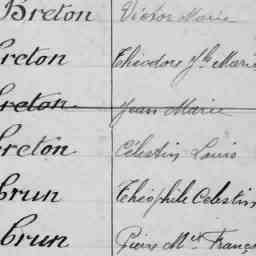 Breton Victor Marie
Breton Théodore Jh Marie
Breton Jean Marie
Breton Célestin Louis
brun Théophile Célestin
brun Pierre Mie Franç